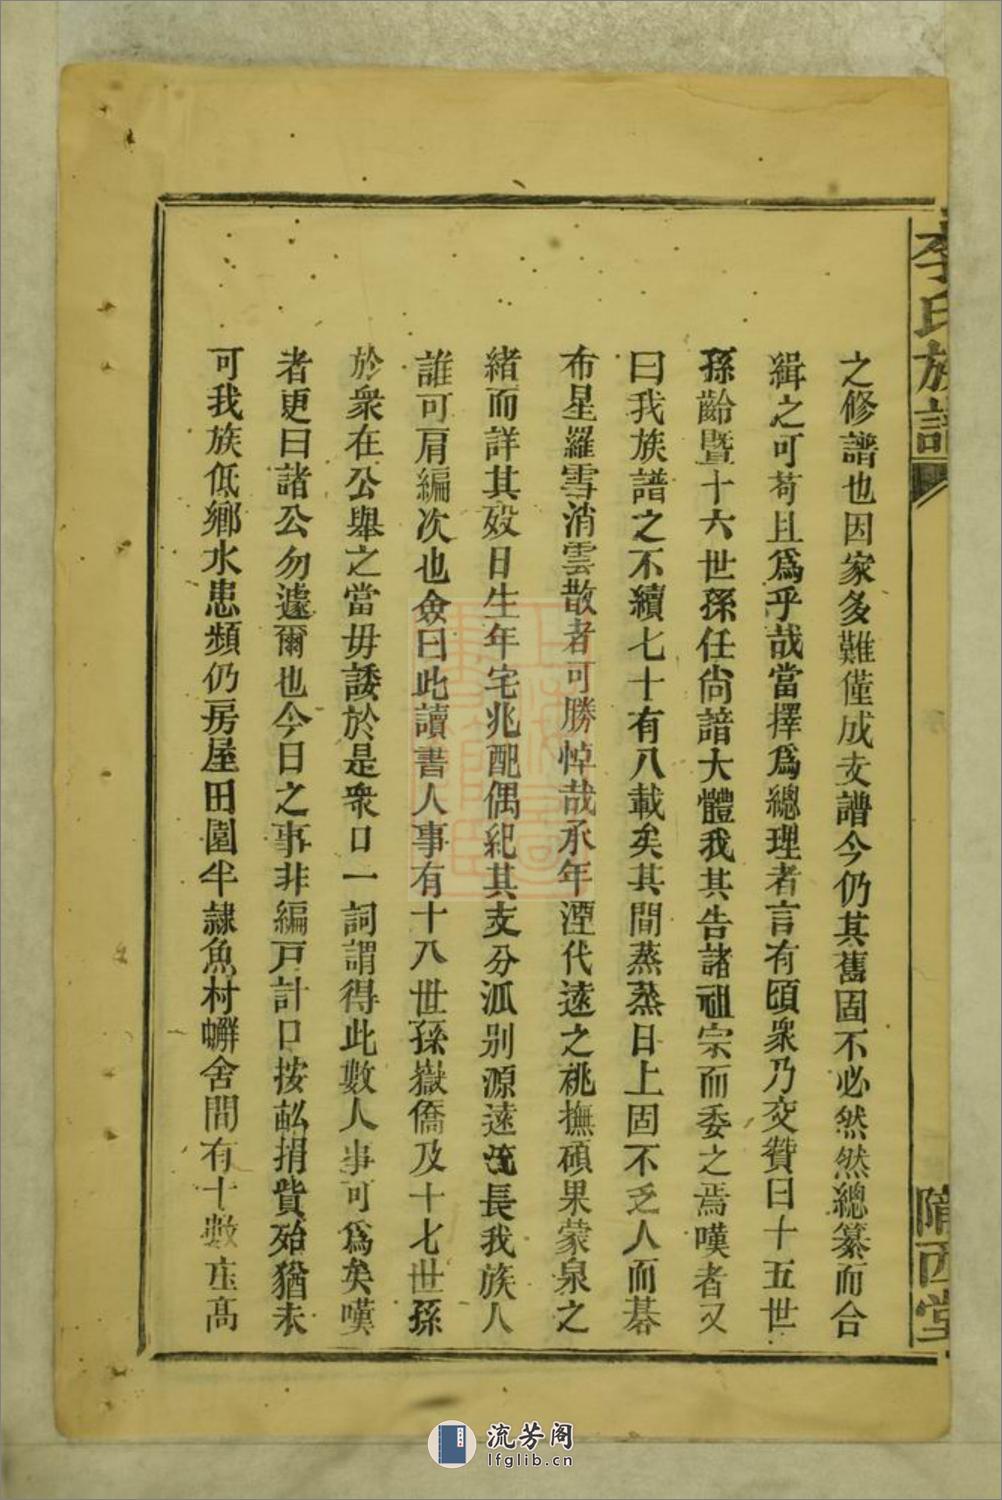 李氏族譜
隴西堂
之修譜也因家多難僅成支譜今仍其舊固不必然然總纂而合
緝之可苟且爲乎哉當擇爲總理者言有頃衆乃交贊曰十五世
孫齡暨十六世孫任尙諳大體我其告諸祖宗而委之焉嘆者又
曰我族譜之不續七十有八載矣其間蒸蒸日上固不乏人而碁
布星羅雪消雲散者可勝悼哉承年湮代遠之祧撫碩果蒙泉之
緒而詳其歿日生年宅兆配偶紀其支分派别源遠流長我族人
誰可肩編次也僉曰此讀書人事有十八世孫嶽僑及十七世孫
於衆在公舉之當毋諉於是衆口一詞謂得此數人事可爲矣嘆
者更曰諸公勿遽爾也今日之事非編戸計口按畝捐貲殆猶未
可我族低鄉水患頻仍房屋田園半隸魚村蠏舍間有十數庄高
流芳阁
lfglib.cn